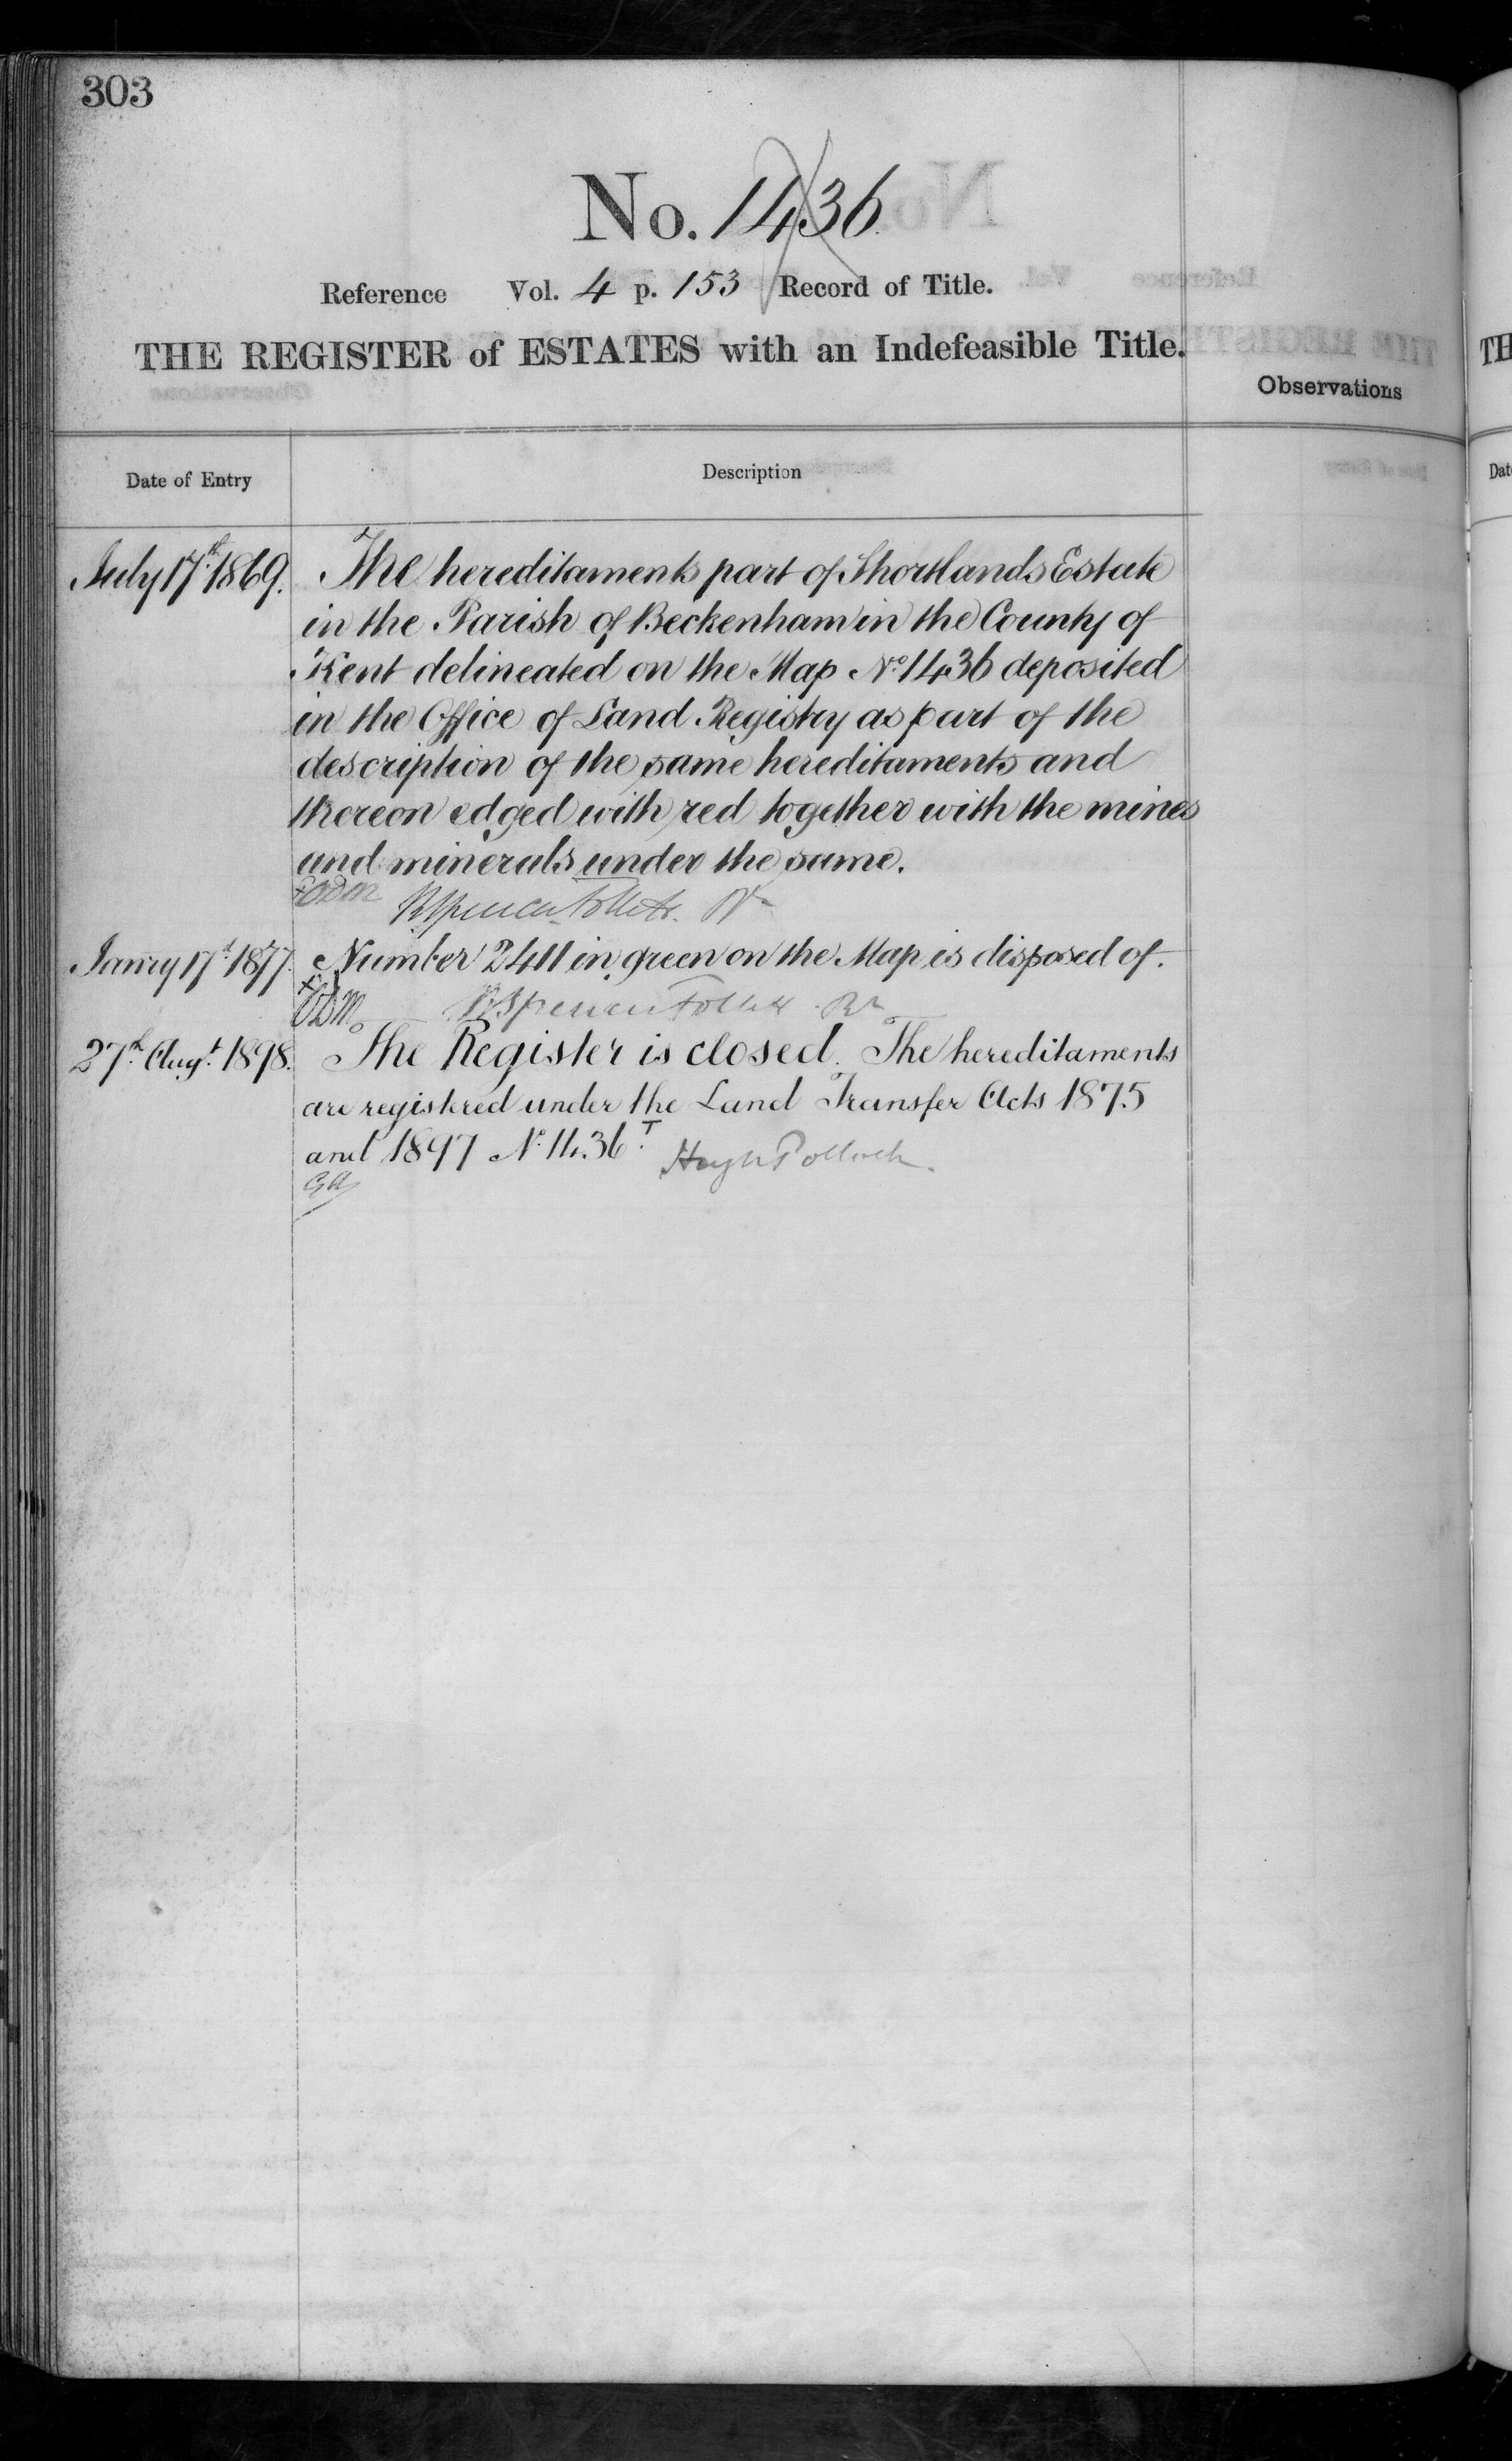 303
No. 1436
Reference Vol. 4 p. 153 Record of Title.
THE REGISTER of ESTATES with an Indefeasible Title.
Observations
Date of Entry
Description
July 17th. 1869.
The hereditaments part of Shortlands Estate
in the Parish of Beckenham in the County of
Kent delineated on the Map No. 1436 deposited
in the Office of Land Registry as part of the
description of the same hereditaments and
thereon edged with red together with the mines
and minerals under the same.
R Spencer Follett. Rr
Janry 17th. 1877.
Number 2411 in green on the Map is disposed of.
R Spencer Follett. Rr
27th. Augt. 1898.
The Register is closed. The hereditaments
are registered under the Land Transfer Acts 1875
and 1897 No. 1436 T.
Hugh Pollock.